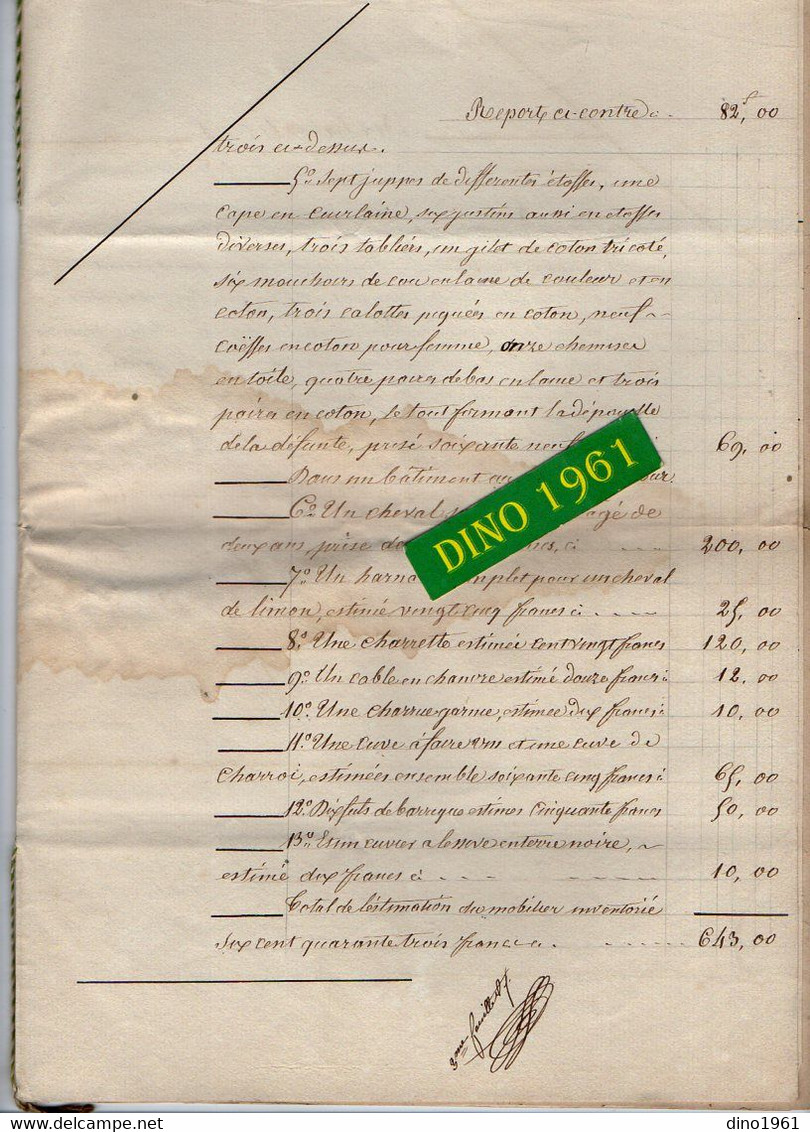 Report ci-contre ci. 82f, 00
trois ci-dessus.
5º Sept juppes de differentes étoffes, une
cape en cuirlaine, six justins aussi en etoffes
diverses, trois tabliers, un gilet de coton tricoté,
six mouchoirs de cou en laine de couleur et en
coton, trois calottes piquées en coton, neuf
coëffes en coton pour femme, onze chemises
en toile, quatre paires de bas en laine et trois
paires en coton, le tout formant la dépouille
de la défunte, prisé soixante neuf 69, 00
Dans un bâtiment au
6º Un cheval agé de
deux ans, prisé ci 200, 00
7º Un harnais complet pour un cheval
de limon, estimé vingt cinq francs ci 25, 00
8º Une charrette estimée cent vingt francs 120, 00
9º Un cable en chanvre estimé douze francs ci 12. 00
10º Une charrue garnie, estimée dix francs ci 10, 00
11º Une cuve à faire vin et une cuve de
charroi, estimées ensemble soixante cinq francs ci 65, 00
12º Dix futs de barrique estimés cinquante francs 50, 00
13º Et un cuvier à lessive en terre noire,
estimé dix francs ci 10, 00
Total de l'estimation du mobilier inventorié
six cent quarante trois francs ci. 643, 00
3me feuillet
DINO 1961
dino1961